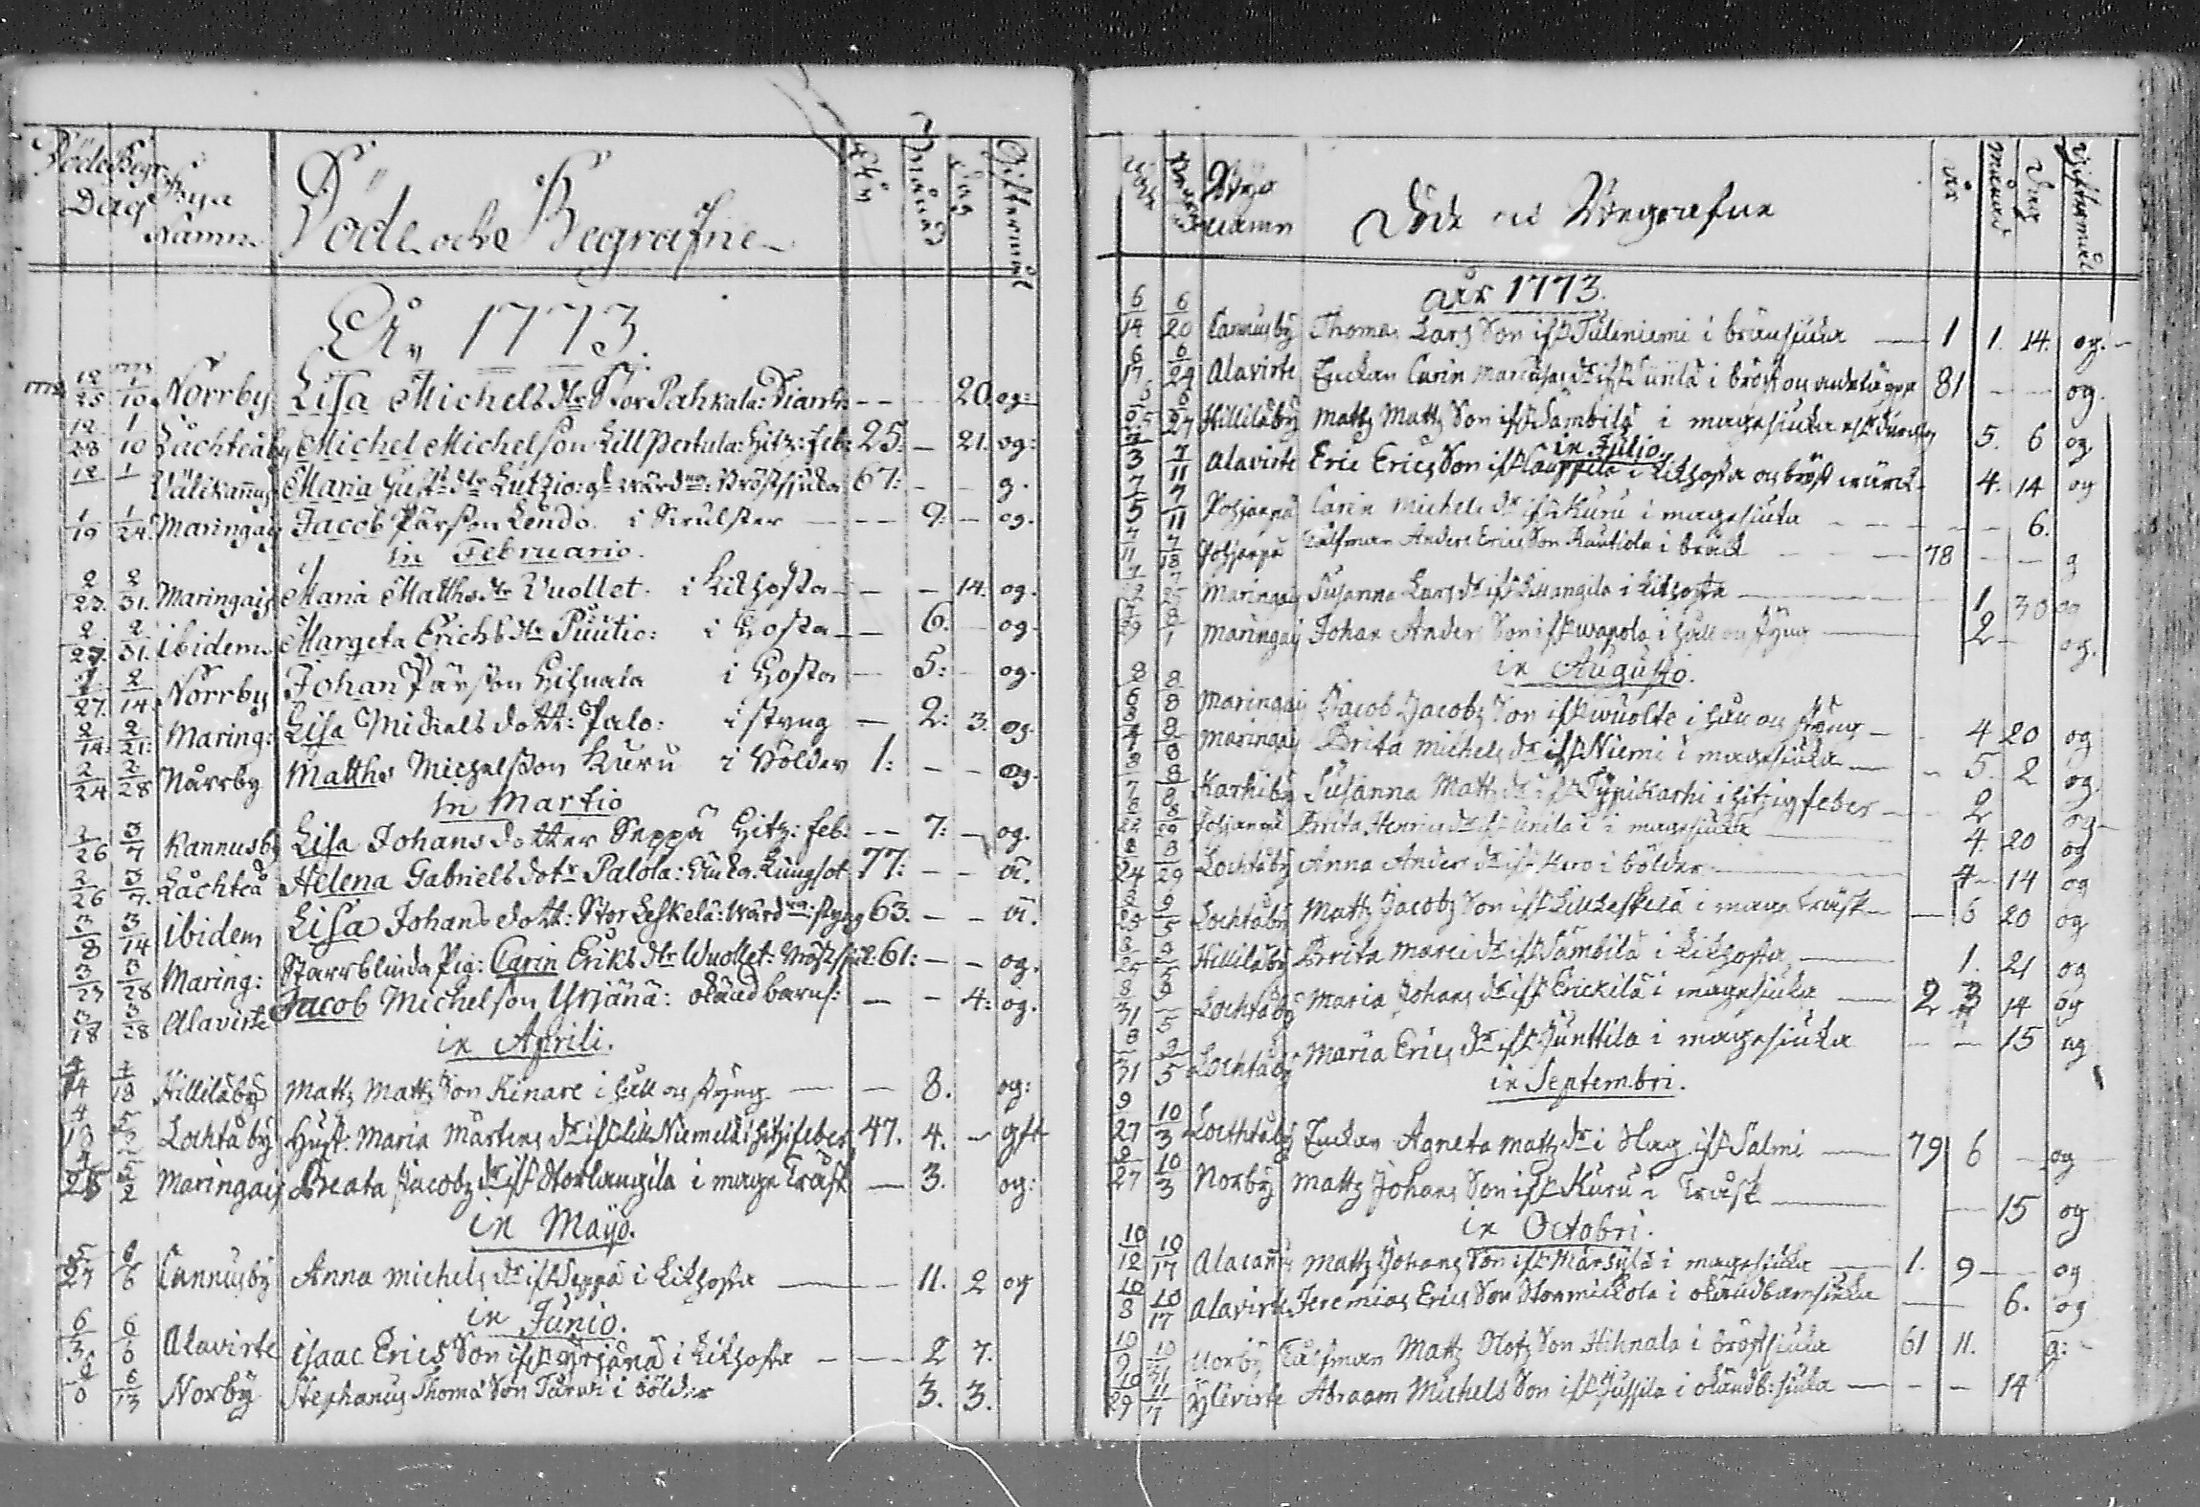 Döde Begr. Bya Döde och Begrafne År Månad Dag Giftermål
Dag Namn
År 1773.
1772 12/25 1773 1/10 Norrby Lisa Michels dtr Stor Pahkala: 20. og:
12/28 1/10 Låchteåby Michel Michelson Lill Pertula: Hitz: feb: 25: — 21. og:
12 1 Välikannus Maria Gust: dtr Lutzio: 67: — g.
1/19 1/24 Maringais Jacob Pärsson Lendo. i — — 9: — og.
in Februario.
2/23. 2/31. Maringais Maria Matths dtr Vuollet. i Kikhosta — — 14. og.
2/27. 2/31. ibidem Margeta Erichs dtr Puutio: i Hosta — 6. og.
1/27. 2/14 Norrby Johan Pärsson Hihnala i Hosta — 5: og.
2/14: 2/21: Maring: Lisa Michels dott: Palo: i styng — 2: 3. og.
2/24 2/28 Nårrby Matths Michelsson Kuru i Bölder 1: — — og.
in Martio
2/26 3/7 Kannusby Lisa Johans dotter Seppä Hitz: feb: — 7: — og.
2/26 3/7. Låchteå Helena Gabriels dotr Palola: Enka. Lungsot 77: — — ä.
3/8 3/14 ibidem Lisa Johans dott: Stor Leskelä: styng 63. — — ä.
3/23 3/28 Maring: Starrblinda Pig: Carin Eriks dtr Wuollet: 61: — — og.
3/18 3/28 Alavirte Jacob Michelson Yrjänä: okänd barns: — — 4: og.
in Aprili.
4/14 4/18 Hilliläby Matts Matts Son Kinare i håll och styng — — 8. og:
4/18 5/2 Lochtå by Hust: Maria Mårtens dr ifr Lill Niemelä i hitzifeber 47. 4. — gft
4/25 5/2 Maringais Beata Jacobs dr ifr Storlangila i mage Träsk — 3. og:
in Mayo.
5/27 6/6 Cannusby Anna Michels dr ifr Seppä i Kikhosta — 11. 2 og
in Junio.
6/3 6/6 Alavirte Isaac Erics Son ifr Yrjänä i Kikhosta — — 2 7.
6/13 Norby Stephanus Thomæ Son i bölder 3. 3.
Död Begr Bya namn Döde och Begrafne år Månad Dag Giftermål
åhr 1773.
6/14 6/20 Cannusby Thomas Lars Son ifr Tuliniemi i bränsjuka — 1 1. 14. og.
6/17 6/24 Alavirte Enckan Carin Marcusdr ifr Siirilä i bröst och andetäppa 81 — — og.
6/25 6/27 Hilliläby Matts Matts Son ifr Sämbilä i magesjuka 5. 6 og
in Julio.
7/3 7/11 Alavirte Eric Erics Son ifr Cauppila i Kikhosta och bröst 4. 14 og
7/5 7/11 Pohjanpä Carin Michels dr ifr Kuru i magesjuka — — 6.
7/11 7/18 Pohjanpä Tålfman Anders Erics Son Rautiola i bråck — 78 — — g
7 7/25 Maringais Susanna Lars dr ifr Lillangila i Kikhosta — 1. 30 og
7/29 8/1 Maringais Johan Anders Son ifr i håll och styng — 2 — og.
in Augusto.
8/6 8/8 Maringais Jacob Jacobs Son ifr Wuolte i håll och styng — 4 20 og
8 8/8 Maringais Brita Michels dr ifr Niemi i magesjuka — 5. 2 og
8/7 8/8 Karhiby Susanna Matts dr ifr Typikarhi i hitzigfeber — 2 og
8/22 8/29 Pohjanpä Brita Henrics dr ifr Anila i magesjuka 4 20 og
8/24 8/29 Lochtåby Anna Anders dr ifr Hero i bölder — 4 — 14 og
8/25 9/5 Lochtåby Matts Jacobs Son ifr Lilleskelä i mage träsk — 6 20 og
8/25 9/5 Hilliläby Brita Marci dr ifr Sämbilä i Kikhosta — 1. 21 og
8/31 9/5 Lochtåby Maria Johans dr ifr Erickilä i magesjuka — 2 3 14 og
8/31 9/5 Lochtåby Maria Erics dr ifr Junttila i magesjuka — — 15 og
in Septembri.
9/27 10/3 Locthtåby Enckan Agneta Matts dr i Slag ifr Salmi — 79 6 — og
9/27 10/3 Norby Matts Johans Son ifr Kuru i Träsk — — 15 og
in Octobri.
10/12 10/17 Alacannus Matts Johans Son ifr Märsylä i magesjuka — 1. 9 — og
10/8 10/17 Alavirte Jeremias Erics Son Stormickola i okändbarnsjuka — 6. og
10/9 10/31 Norby Tålfman Matts Olofs Son Hihnala i bröstsjuka 61 11. g:
10/29 11/7 Yliviste Abraam Michels Son ifr Jussila i okändb: sjuka — — — 14